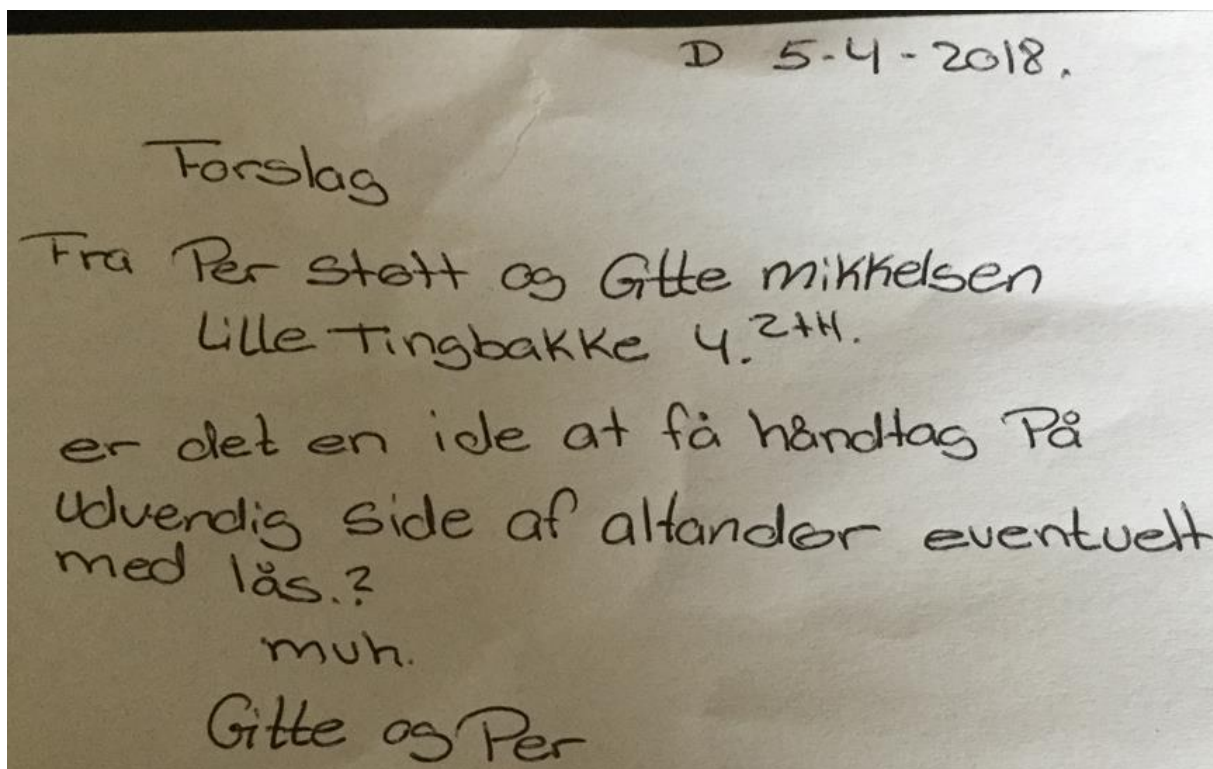 D 5-4-2018.
Forslag
Fra Per Støtt og Gitte mikkelsen
Lille Tingbakke 4. 2TH.
er det en ide at få håndtag På
udvendig side af altandør eventuelt
med lås.?
mvh.
Gitte og Per